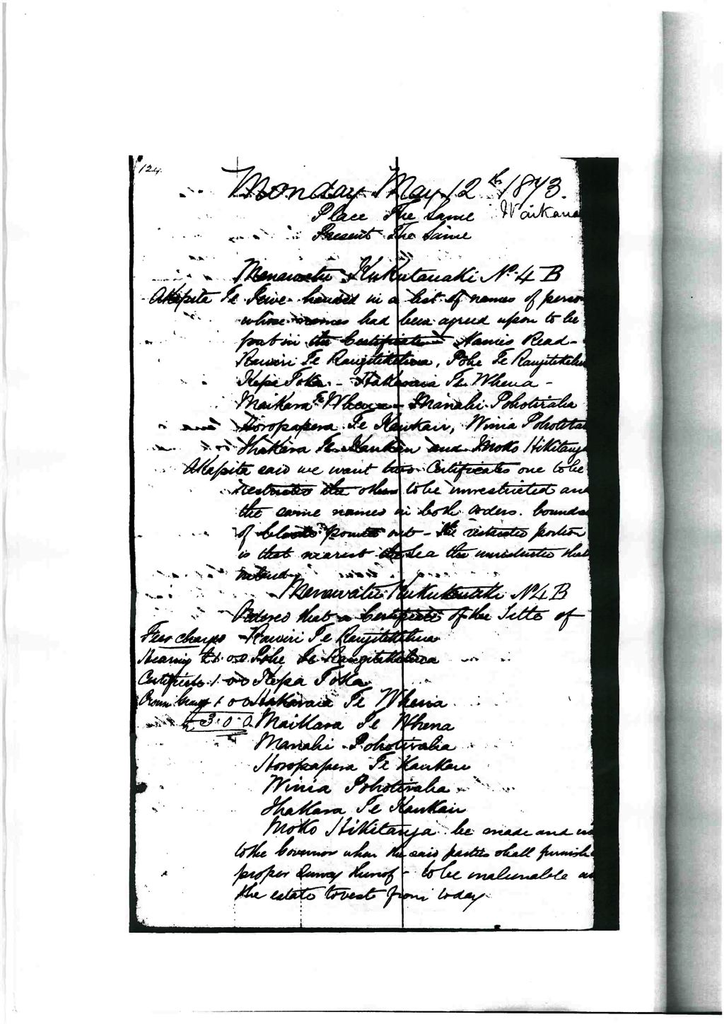 124
Monday May 12th 1873.
Place The Same Waikana
Present The Same
Manawatu Kukutauaki No 4 B
Akapita Te Tewe handed in a list of names of person
whose names had been agreed upon to be
put in the Certificate Names Read -
Rawiri Te Rangitekehua, Pohe Te Rangitekehua
Kepa Toka - Hakaraia Te Whena -
Maikara Te Whena Manahi Pohotiraha
Horopapera Te Kaukau, Winia Pohotiraha
Ihakara Te Kaukau and Moko Hikitanga
Akapita said we want two Certificates one to be
restricted the other to be unrestricted and
the same names in both orders. bounds
of blocks pointed out - the restricted portion
is that nearest the sea the unrestricted that
inland
Manawatu Kukutauaki No 4 B
Ordered that a Certificate of the Title of
Fees charged Rawiri Te Rangitekehua
Hearing £1.0.0 Pohe Te Rangitekehua
Certificate 1.0.0 Kepa Toka
Crown Grant 1.0.0 Hakaraia Te Whena
£3.0.0 Maikara Te Whena
Manahi Pohotiraha
Horopapera Te Kaukau
Winia Pohotiraha
Ihakara Te Kaukau
Moko Hikitanga be made and
to the Governor when the said parties shall furnish
proper Survey thereof - to be inalienable
the estate to vest from today